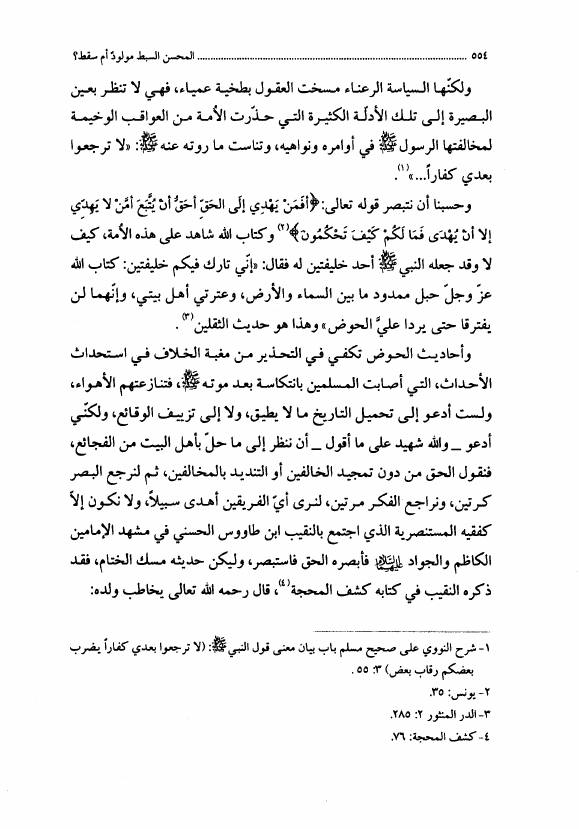 ٥٥٤ ........................................................................ المحسن السبط مولودٌ أم سقط؟
ولكنّها السياسة الرعناء مسخت العقول بطخية عمياء، فهي لا تنظر بعين
البصيرة إلى تلك الأدلّة الكثيرة التي حذّرت الأمة من العواقب الوخيمة
لمخالفتها الرسول ﷺ في أوامره ونواهيه، وتناست ما روته عنه ﷺ: «لا ترجعوا
بعدي كفاراً...»(١).
وحسبنا أن نتبصر قوله تعالى: ﴿أَفَمَنْ يَهْدِي إِلَى الحَقِّ أَحَقُّ أَنْ يُتَّبَعَ أَمَّنْ لا يَهِدِّي
إِلا أَنْ يُهْدَى فَمَا لَكُمْ كَيْفَ تَحْكُمُونَ﴾(٢) وكتاب الله شاهد على هذه الأمة، كيف
لا وقد جعله النبي ﷺ أحد خليفتين له فقال: «إنّي تارك فيكم خليفتين: كتاب الله
عزّ وجلّ حبل ممدود ما بين السماء والأرض، وعترتي أهل بيتي، وإنّهما لن
يفترقا حتى يردا عليَّ الحوض» وهذا هو حديث الثقلين(٣).
وأحاديث الحوض تكفي في التحذير من مغبة الخلاف في استحداث
الأحداث، التي أصابت المسلمين بانتكاسة بعد موته ﷺ، فتنازعتهم الأهواء،
ولست أدعو إلى تحميل التاريخ ما لا يطيق، ولا إلى تزييف الوقائع، ولكنّي
أدعو _ والله شهيد على ما أقول _ أن ننظر إلى ما حلّ بأهل البيت من الفجائع،
فنقول الحق من دون تمجيد الخالفين أو التنديد بالمخالفين، ثم لنرجع البصر
كرتين، ونراجع الفكر مرتين، لنرى أيّ الفريقين أهدى سبيلاً، ولا نكون إلاّ
كفقيه المستنصرية الذي اجتمع بالنقيب ابن طاووس الحسني في مشهد الإمامين
الكاظم والجواد عليهما السلام فأبصره الحق فاستبصر، وليكن حديثه مسك الختام، فقد
ذكره النقيب في كتابه كشف المحجة(٤)، قال رحمه الله تعالى يخاطب ولده:
١- شرح النووي على صحيح مسلم باب بيان معنى قول النبي ﷺ: (لا ترجعوا بعدي كفاراً يضرب
بعضكم رقاب بعض) ٣: ٥٥.
٢- يونس: ٣٥.
٣- الدر المنثور ٢: ٢٨٥.
٤- كشف المحجة: ٧٦.